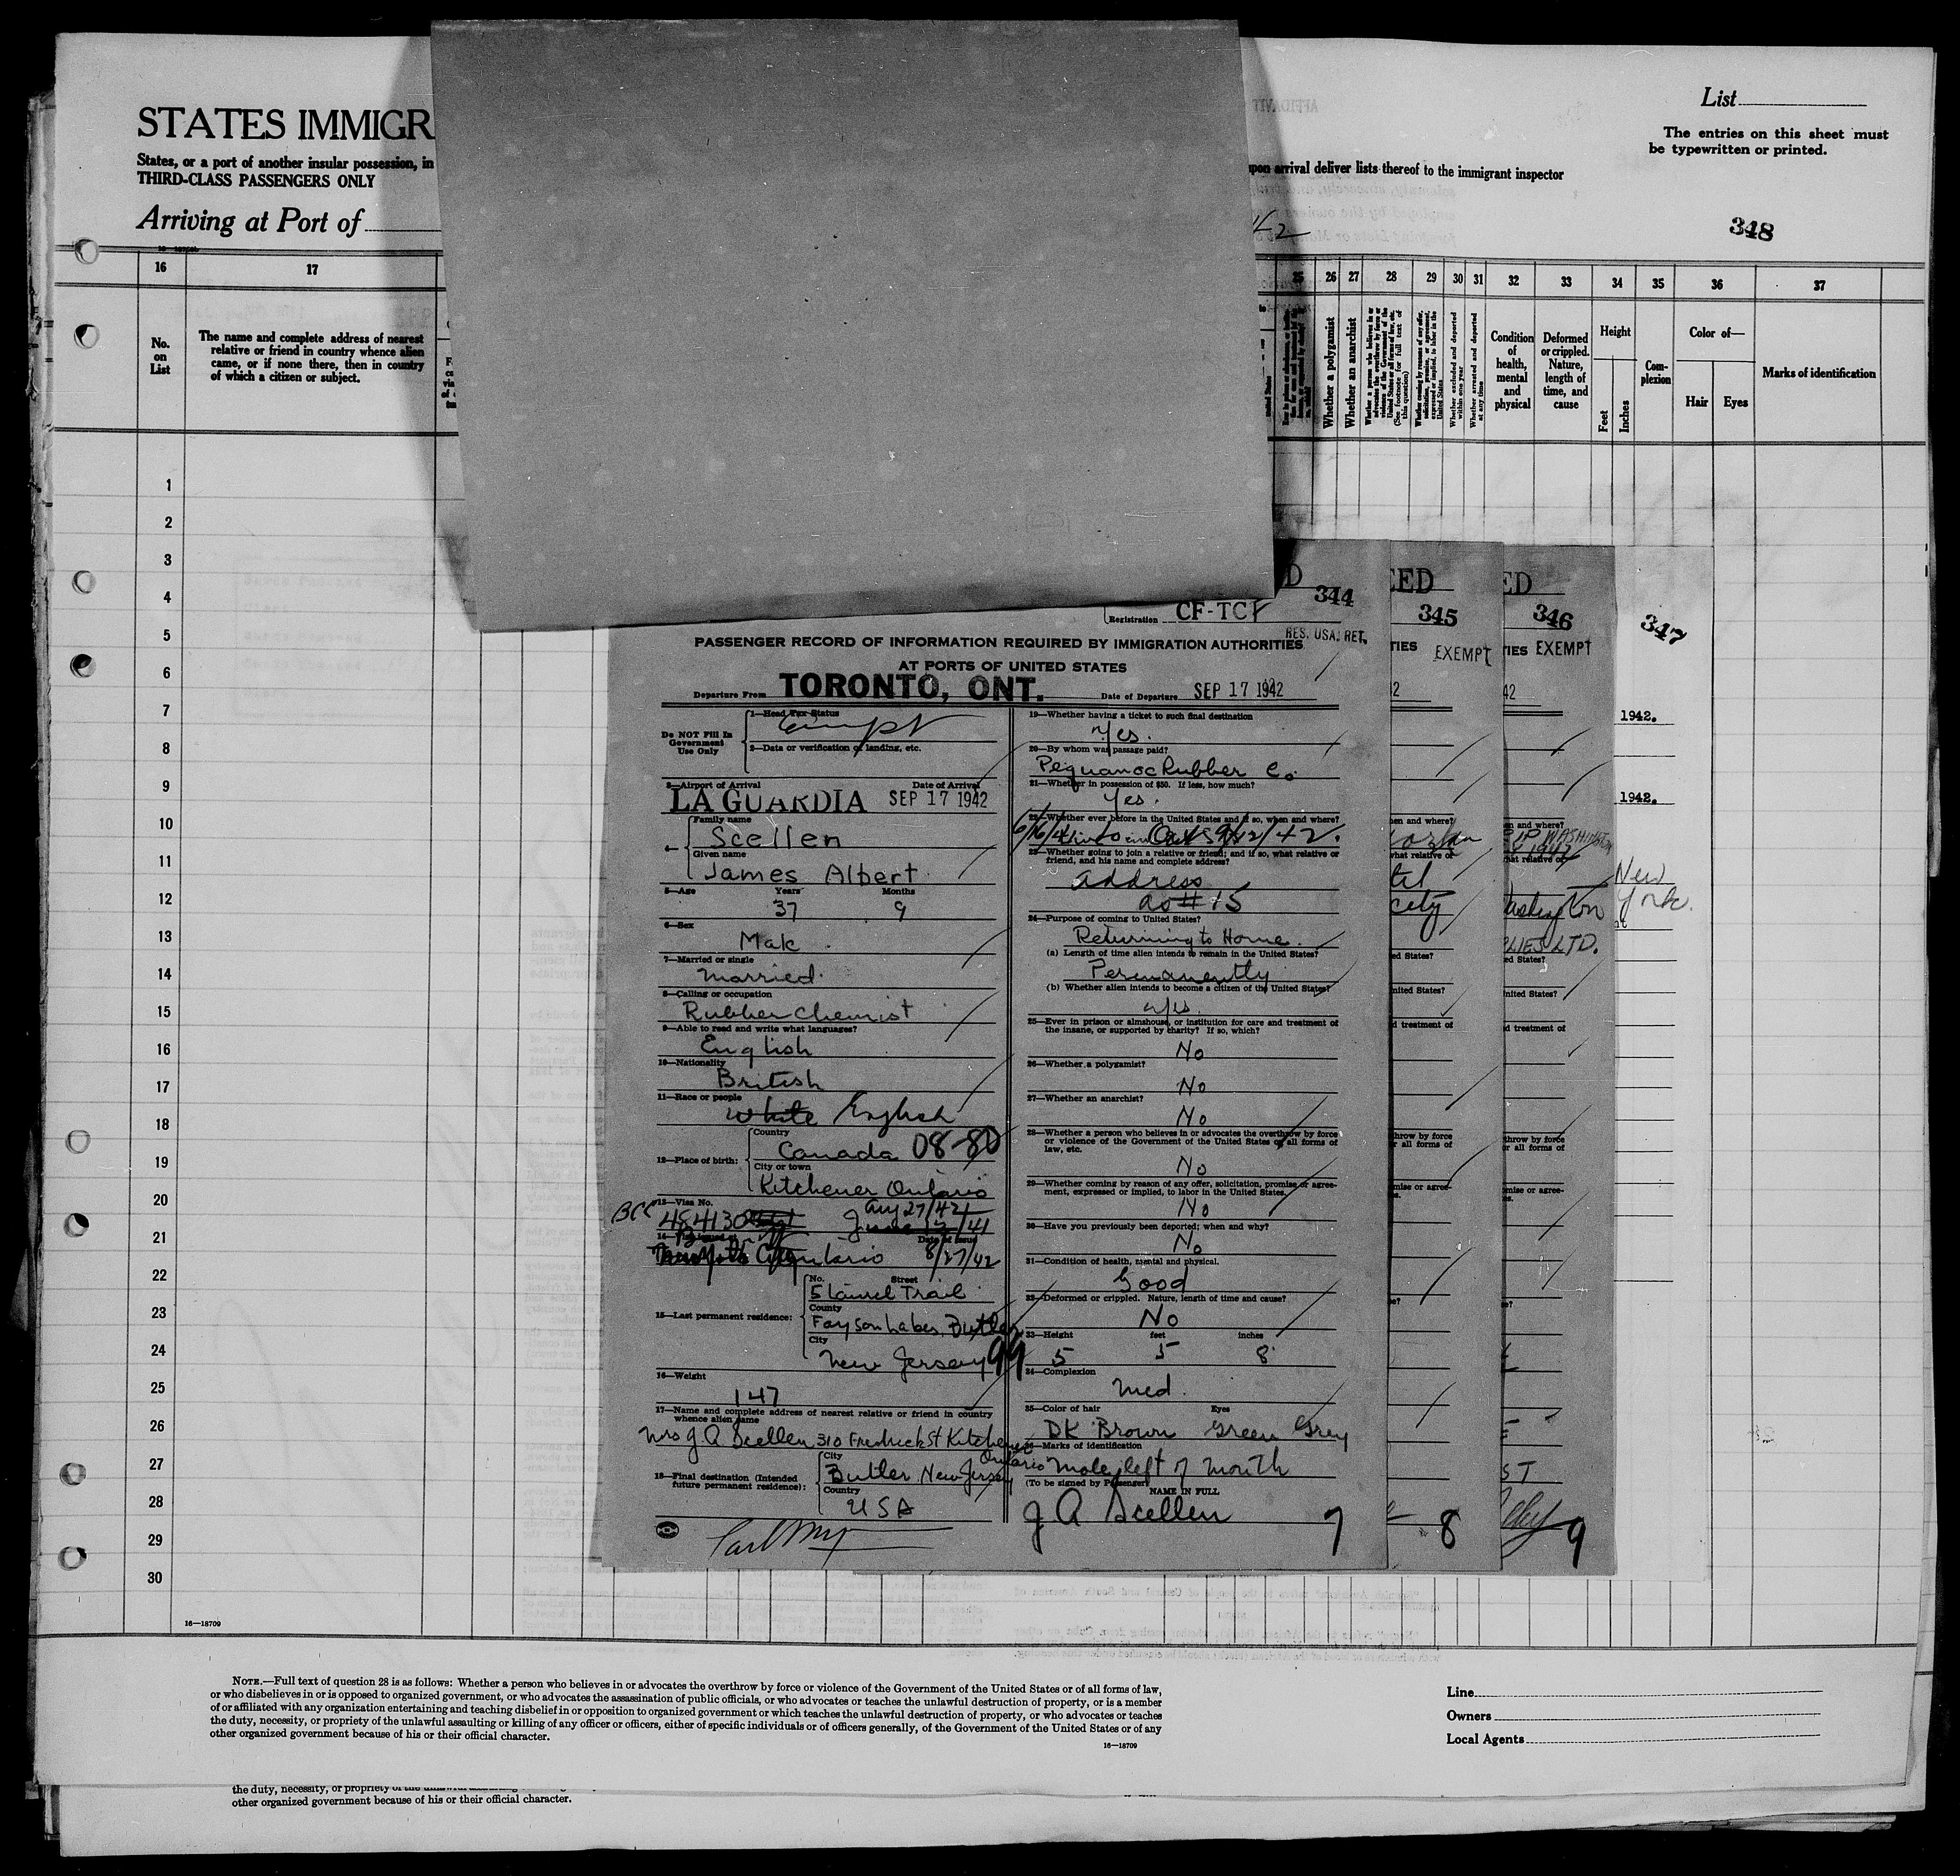 STATES IMMIGR
States, or a port of another insular possession, in
THIRD-CLASS PASSENGERS ONLY
Arriving at Port of
upon arrival deliver lists thereof to the immigrant inspector
List
The entries on this sheet must
be typewritten or printed.
348
16 17
25 26 27 28 29 30 31 32 33 34 35 36 37
No.
on
List
The name and complete address of nearest
relative or friend in country whence alien
came, or if none there, then in country
of which a citizen or subject.
Whether a polygamist
Whether an anarchist
Whether excluded and deported within one year
Whether arrested and deported at any time
Condition
of
health,
mental
and
physical
Deformed
or crippled.
Nature,
length of
time, and
cause
Height
Feet
Inches
Com-
plexion
Color of—
Hair Eyes
Marks of identification
1
2
3
4
5
6
7
8
9
10
11
12
13
14
15
16
17
18
19
20
21
22
23
24
25
26
27
28
29
30
16—18709
Registration CF-TCF
344
RES. USA. RET.
PASSENGER RECORD OF INFORMATION REQUIRED BY IMMIGRATION AUTHORITIES
AT PORTS OF UNITED STATES
Departure From TORONTO, ONT. Date of Departure SEP 17 1942
Do NOT Fill In
Government
Use Only
1—Head Tax Status
Exempt
2—Data or verification of landing, etc.
3—Airport of Arrival Date of Arrival
LA GUARDIA SEP 17 1942
4— Family name
Scellen
Given name
James Albert
5—Age Years Months
37 9
6—Sex
Male
7—Married or single
Married
8—Calling or occupation
Rubber Chemist
9—Able to read and write what languages?
English
10—Nationality
British
11—Race or people
white English
12—Place of birth: Country
Canada 08-80
City or town
Kitchener Ontario
13—Visa No.
Aug 27/42
BCC 484130 June 12/41
Date of Issue
Ontario 8/27/42
15—Last permanent residence: No. Street
5 Laurel Trail
County
Fayson Lakes, Butler
City
New Jersey 99
16—Weight
147
17—Name and complete address of nearest relative or friend in country
whence alien came
Mrs J. A Scellen 310 Fredrick St Kitchener
Ontario
18—Final destination (Intended
future permanent residence): City
Butler New Jersey
Country
USA
19—Whether having a ticket to such final destination
Yes.
20—By whom was passage paid?
Pequanoc Rubber Co.
21—Whether in possession of $50. If less, how much?
Yes.
22—Whether ever before in the United States and if so, when and where?
6/16/41 to 9/12/42.
23—Whether going to join a relative or friend; and if so, what relative or
friend, and his name and complete address?
address
as # 15
24—Purpose of coming to United States?
Returning to Home.
(a) Length of time alien intends to remain in the United States?
Permanently
(b) Whether alien intends to become a citizen of the United States?
yes.
25—Ever in prison or almshouse, or institution for care and treatment of
the insane, or supported by charity? If so, which?
No
26—Whether a polygamist?
No
27—Whether an anarchist?
No
28—Whether a person who believes in or advocates the overthrow by force
or violence of the Government of the United States or all forms of
law, etc.
No
29—Whether coming by reason of any offer, solicitation, promise or agree-
ment, expressed or implied, to labor in the United States.
No
30—Have you previously been deported; when and why?
No
31—Condition of health, mental and physical.
Good
32—Deformed or crippled. Nature, length of time and cause?
No
33—Height feet inches
5 5 8
34—Complexion
Med.
35—Color of hair Eyes
DK Brown Green Grey
36—Marks of identification
Mole left of mouth
(To be signed by Passenger)
NAME IN FULL
J A Scellen
7
345
EXEMPT
8
346
EXEMPT
WASHINGTON
Washington
PLIES LTD.
9
347
1942.
1942.
New
York.
NOTE.—Full text of question 28 is as follows: Whether a person who believes in or advocates the overthrow by force or violence of the Government of the United States or of all forms of law,
or who disbelieves in or is opposed to organized government, or who advocates the assassination of public officials, or who advocates or teaches the unlawful destruction of property, or is a member
of or affiliated with any organization entertaining and teaching disbelief in or opposition to organized government or which teaches the unlawful destruction of property, or who advocates or teaches
the duty, necessity, or propriety of the unlawful assaulting or killing of any officer or officers, either of specific individuals or of officers generally, of the Government of the United States or of any
other organized government because of his or their official character.
16—18709
Line
Owners
Local Agents
the duty, necessity, or propriety of the unlawful
other organized government because of his or their official character.